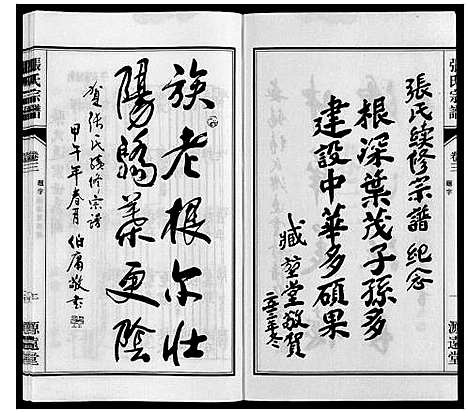 張氏宗譜
卷三
題字
源遠堂
張氏續修宗譜紀念
根深葉茂子孫多
建設中華多碩果
臧堂敬賀
族老根尔壮
陽驕葉更陰
賀張氏續修宗譜
甲午年春月伯庸敬書
張氏宗譜
卷三
題字
源遠堂